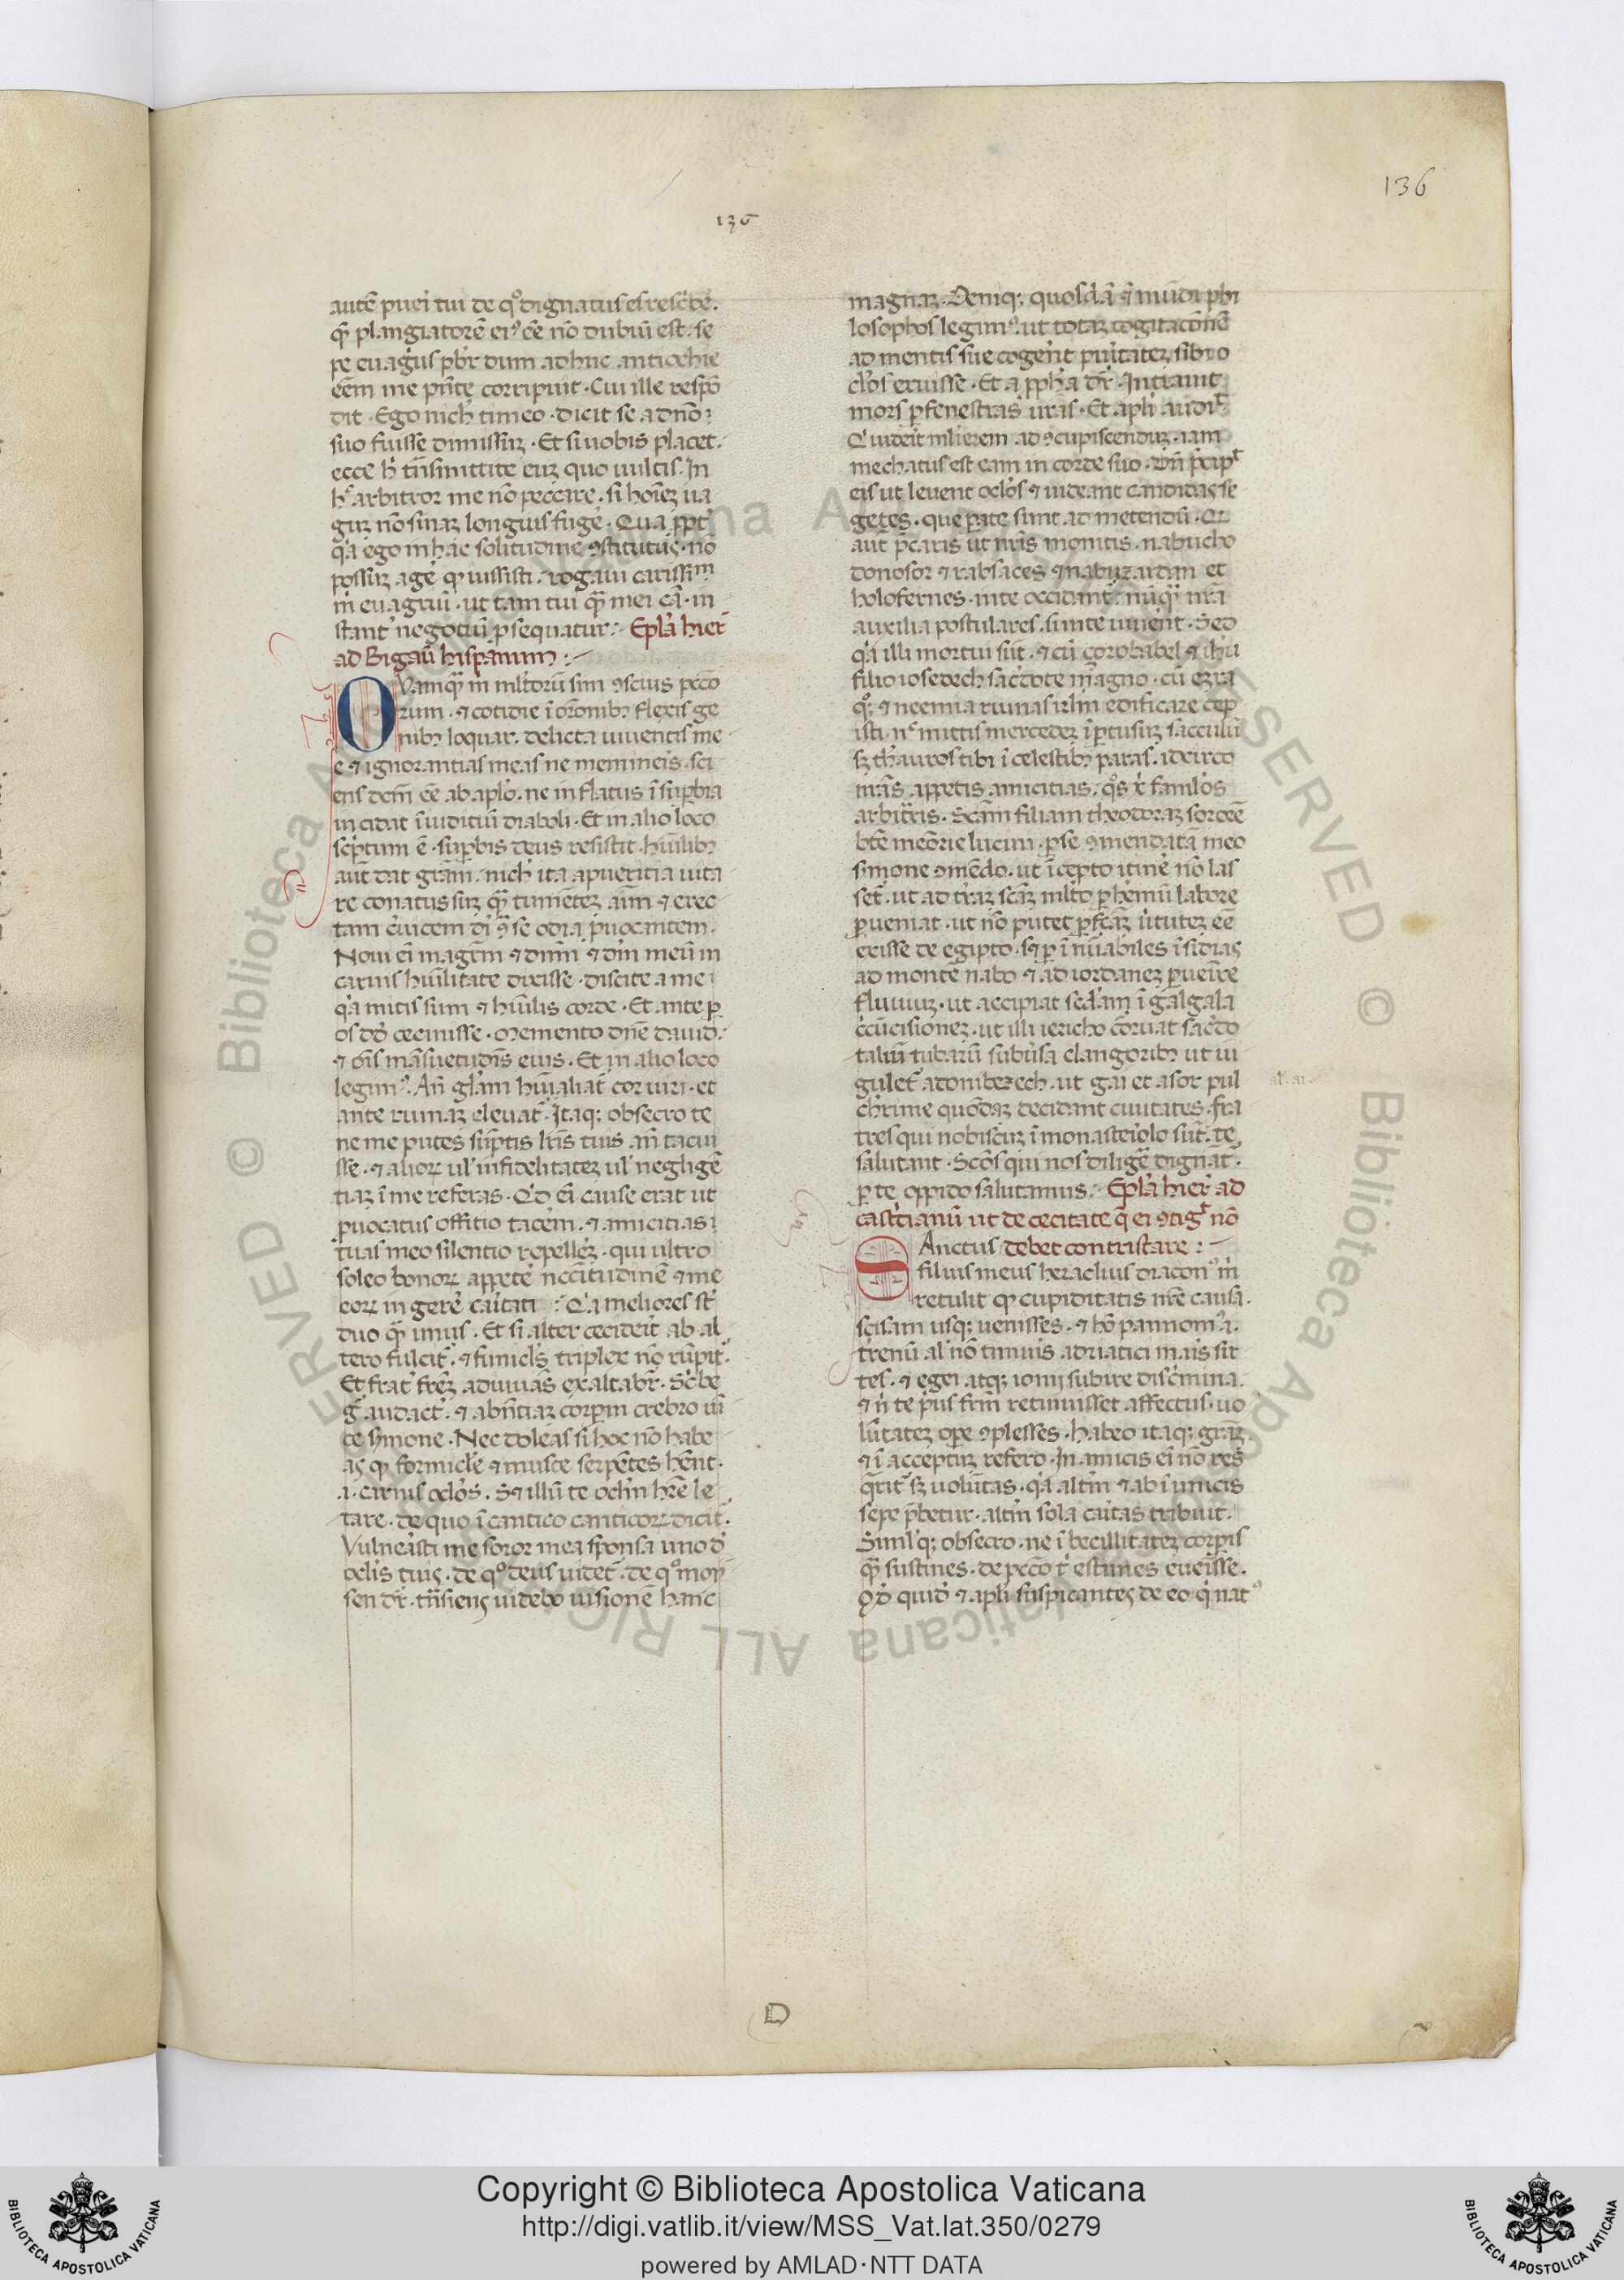 136
136
autē pueri tui de qͦ dignatus es resc̾be.
qȝ plangiatorē ei⁹ eē nō dubiū est. se
pe euagrius pbr̄ dum adhuc antiochie
eēm me pn̄te corripuit. Cui ille respō
dit. Ego nich̾ timeo. dicit se a dnō
suo fuisse dimissuȝ. Et si uobis placet.
ecce h̾ tn̄smittite euȝ quo uultis. In
hͨ arbitror me nō peccare. si hoīeȝ ua
guȝ nō sinaȝ longius fuge̾. Qua ꝓpt̾
q̾a ego in hac solitudine ꝯstitutus. nō
possuȝ age̾ qꝫ iussisti. rogaui carissiᵐ
m̾ euagriū. ut tam tui qȝ mei cā. in
stant̾ negotiū ꝓsequatur. Epl̾a hier̄
ad Bigaū hispanum :
Quamqȝ m̾ ml̾torū sim ꝯscius pcc̄o
rum. ⁊ cotidie ī or̄onibꝫ flexis ge
nibꝫ loquar. delicta iuuentis me
e ⁊ ignorantias meas ne meminēis. sci
ens dc̄m eē ab aplo. ne inflatus ī suꝑbia
incidat ī iuditiū diaboli. Et in alio loco
sc̾ptum ē. suꝑbis deus resistit. hūilibꝫ
aūt dat gr̄am. nich̾ ita a pueritia uita
re conatus suȝ qȝ tumēteȝ aīm ⁊ erec
tam c̾uicem di̾ ꝯ̃ se odia ꝓuocantem.
Noui eī magr̄m ⁊ dnm̄ ⁊ dm̄ meū in
carnis hūilitate dixisse. discite a me
q̾a mitis sum ⁊ hūilis corde. Et ante ꝑ
os dd̾ cecinisse. Memento dn̄e dauid.
⁊ ōis māsuetudīs eius. Et in alio loco
legim⁹. An̄ gl̾am hūiliat̾ cor uiri. et
ante ruinaȝ eleuat̾. Itaqꝫ obsecro te
ne me putes sūptis lr̄is tuis an̄ tacui
sse. ⁊ alioꝝ ul̾ infidelitateȝ ul̾ negligē
tiaȝ ī me referas. Qd̾ eī cause erat ut
ꝓuocatus offitio tacem̾. ⁊ amicitias
tuas meo silentio repelle̾ȝ. qui ultro
soleo bonoꝝ appete̾ nccītudinē ⁊ me
eoꝝ ingere̾ caritati. Q̾a meliores st̾
duo qȝ unus. Et si alter cecideīt ab al
tero fulcit̾. ⁊ funicl̾s triplex nō rūpit̾.
Et frat̾ frēȝ adiuuās exaltabr̄. Sc̾be
g̾ audact̾. ⁊ abn̄tiaȝ corpm̄ crebro ui
ce sermone. Nec doleas si hoc nō habe
as qꝫ formicl̾e ⁊ musce serpētes hēnt.
.i. carnis ocl̾os. Sꝫ illū te ocl̾m hr̄e le
tare. de quo ī cantico canticoꝝ dicit̾.
Vulneasti me soror mea sponsa uno d̾
ocl̾is tuis. de qͦ deus uidet̾. de qͦ moy
sen dr̄. tn̄siens uidebo uisionē hanc
magnaȝ. Deniqꝫ quosdā ⁊ mūdi phi
losophos legim⁹. ut totaȝ cogitac̄onē
ad mentis sue cogērēt puritateȝ sibi o
cl̾os eruisse. Et a ꝓph̾a dr̄. Intrauit
mors ꝑ fenestras ur̄as. Et apl̾i audiᵗ
Q̾ uideit ml̾ierem ad ꝯcupiscenduȝ. iam
mechatus est eam in corde suo. Vn̄ p̾cipᵗ
eis ut leuent ocl̾os ⁊ uideant candidas se
getes. que pate sunt ad metendū. Qꝛ
aut p̾caris ut nr̄is monitis. nabucho
donosor ⁊ rabsaces ⁊ nabuzardan et
holofernes. in te occidant̾. nūqȝ nr̄a
auxilia postulares. si in te uiue̾nt. Sed
q̾a illi mortui sūt. ⁊ cū çorobabel ⁊ ih̾u
filio iosedech sac̾dote magno. cū ezra
qͦqꝫ ⁊ neemia ruinas ir̄lm edificare cep
isti. nͨ mittis mercedeȝ ī ꝑtusuȝ sacculū
sꝫ th̾auros tibi ī celestibꝫ paras. idcirco
nr̄as appetis amicitias. qͦs x̄ famlo̾s
arbit̾ris. Scām filiam theodoraȝ sororē
bt̄e meōrie lucini. ꝑ se ꝯmendatā meo
s̾mone ꝯmēdo. ut ī cepto itine̾ nō las
set̾. ut ad tr̄aȝ scāȝ ml̾to ꝑ h̾emū labore
ꝑueniat. ut nō putet ꝑfc̄aȝ u̾tuteȝ eē
exisse de egipto. sꝫ ꝑ īnūabiles īsidias
ad montē nabo ⁊ ad iordaneȝ ꝑueīre
fluuiuȝ. ut accipiat scd̾am ī galgala
c̾cūcisioneȝ. ut illi iericho cōruat sac̾do
taliū tubarū sub̾usa clangoribꝫ ut iu
gulet̾ adonibezech. ut gai et asor pul
ch̾rime quōdaȝ decidant ciuitates. fra
tres qui nobiscuȝ ī monastēiolo sūt. te
salutant. Scōs qui nos dilige̾ dignat̾.
ꝑ te oppido salutamus. Epl̾a hier̄ ad
cast̾cianū ut de cecitate q̄ ei ꝯtigᵗ nō
debet contristare :
Sanctus
filius meus heraclius diacon⁹ m̾
retulit qꝫ cupiditatis nr̄e causa.
scisam usqꝫ uenisses. ⁊ hō pannoni⁹ .i.
t̾renū al̾ nō timuis adriatici maris sir
tes. ⁊ egei atqꝫ ionij subire discrimina.
⁊ n̄ te pius frm̄ retinuisset affectus. uo
lūtateȝ oꝑe ꝯplesses. habeo itaqꝫ gr̄aȝ.
⁊ ī acceptuȝ refero. In amicis eī nō res
q̄rit̾ sꝫ uolūtas. q̾a altm̾ ⁊ ab īimicis
sepe p̄betur. altm̾ sola caritas tribuit.
Siml̾qꝫ obsecro. ne ībecillitateȝ corꝑis
qȝ sustines. de pccō t̾ estimes eueīsse.
Qd̾ quid̾ ⁊ apl̾i suspicantes de eo q̾ nat⁹
al. ai.
Copyright © Biblioteca Apostolica Vaticana
http://digi.vatlib.it/view/MSS_Vat.lat.350/0279
powered by AMLAD·NTT DATA
BIBLIOTECA APOSTOLICA VATICANA
BIBLIOTECA APOSTOLICA VATICANA